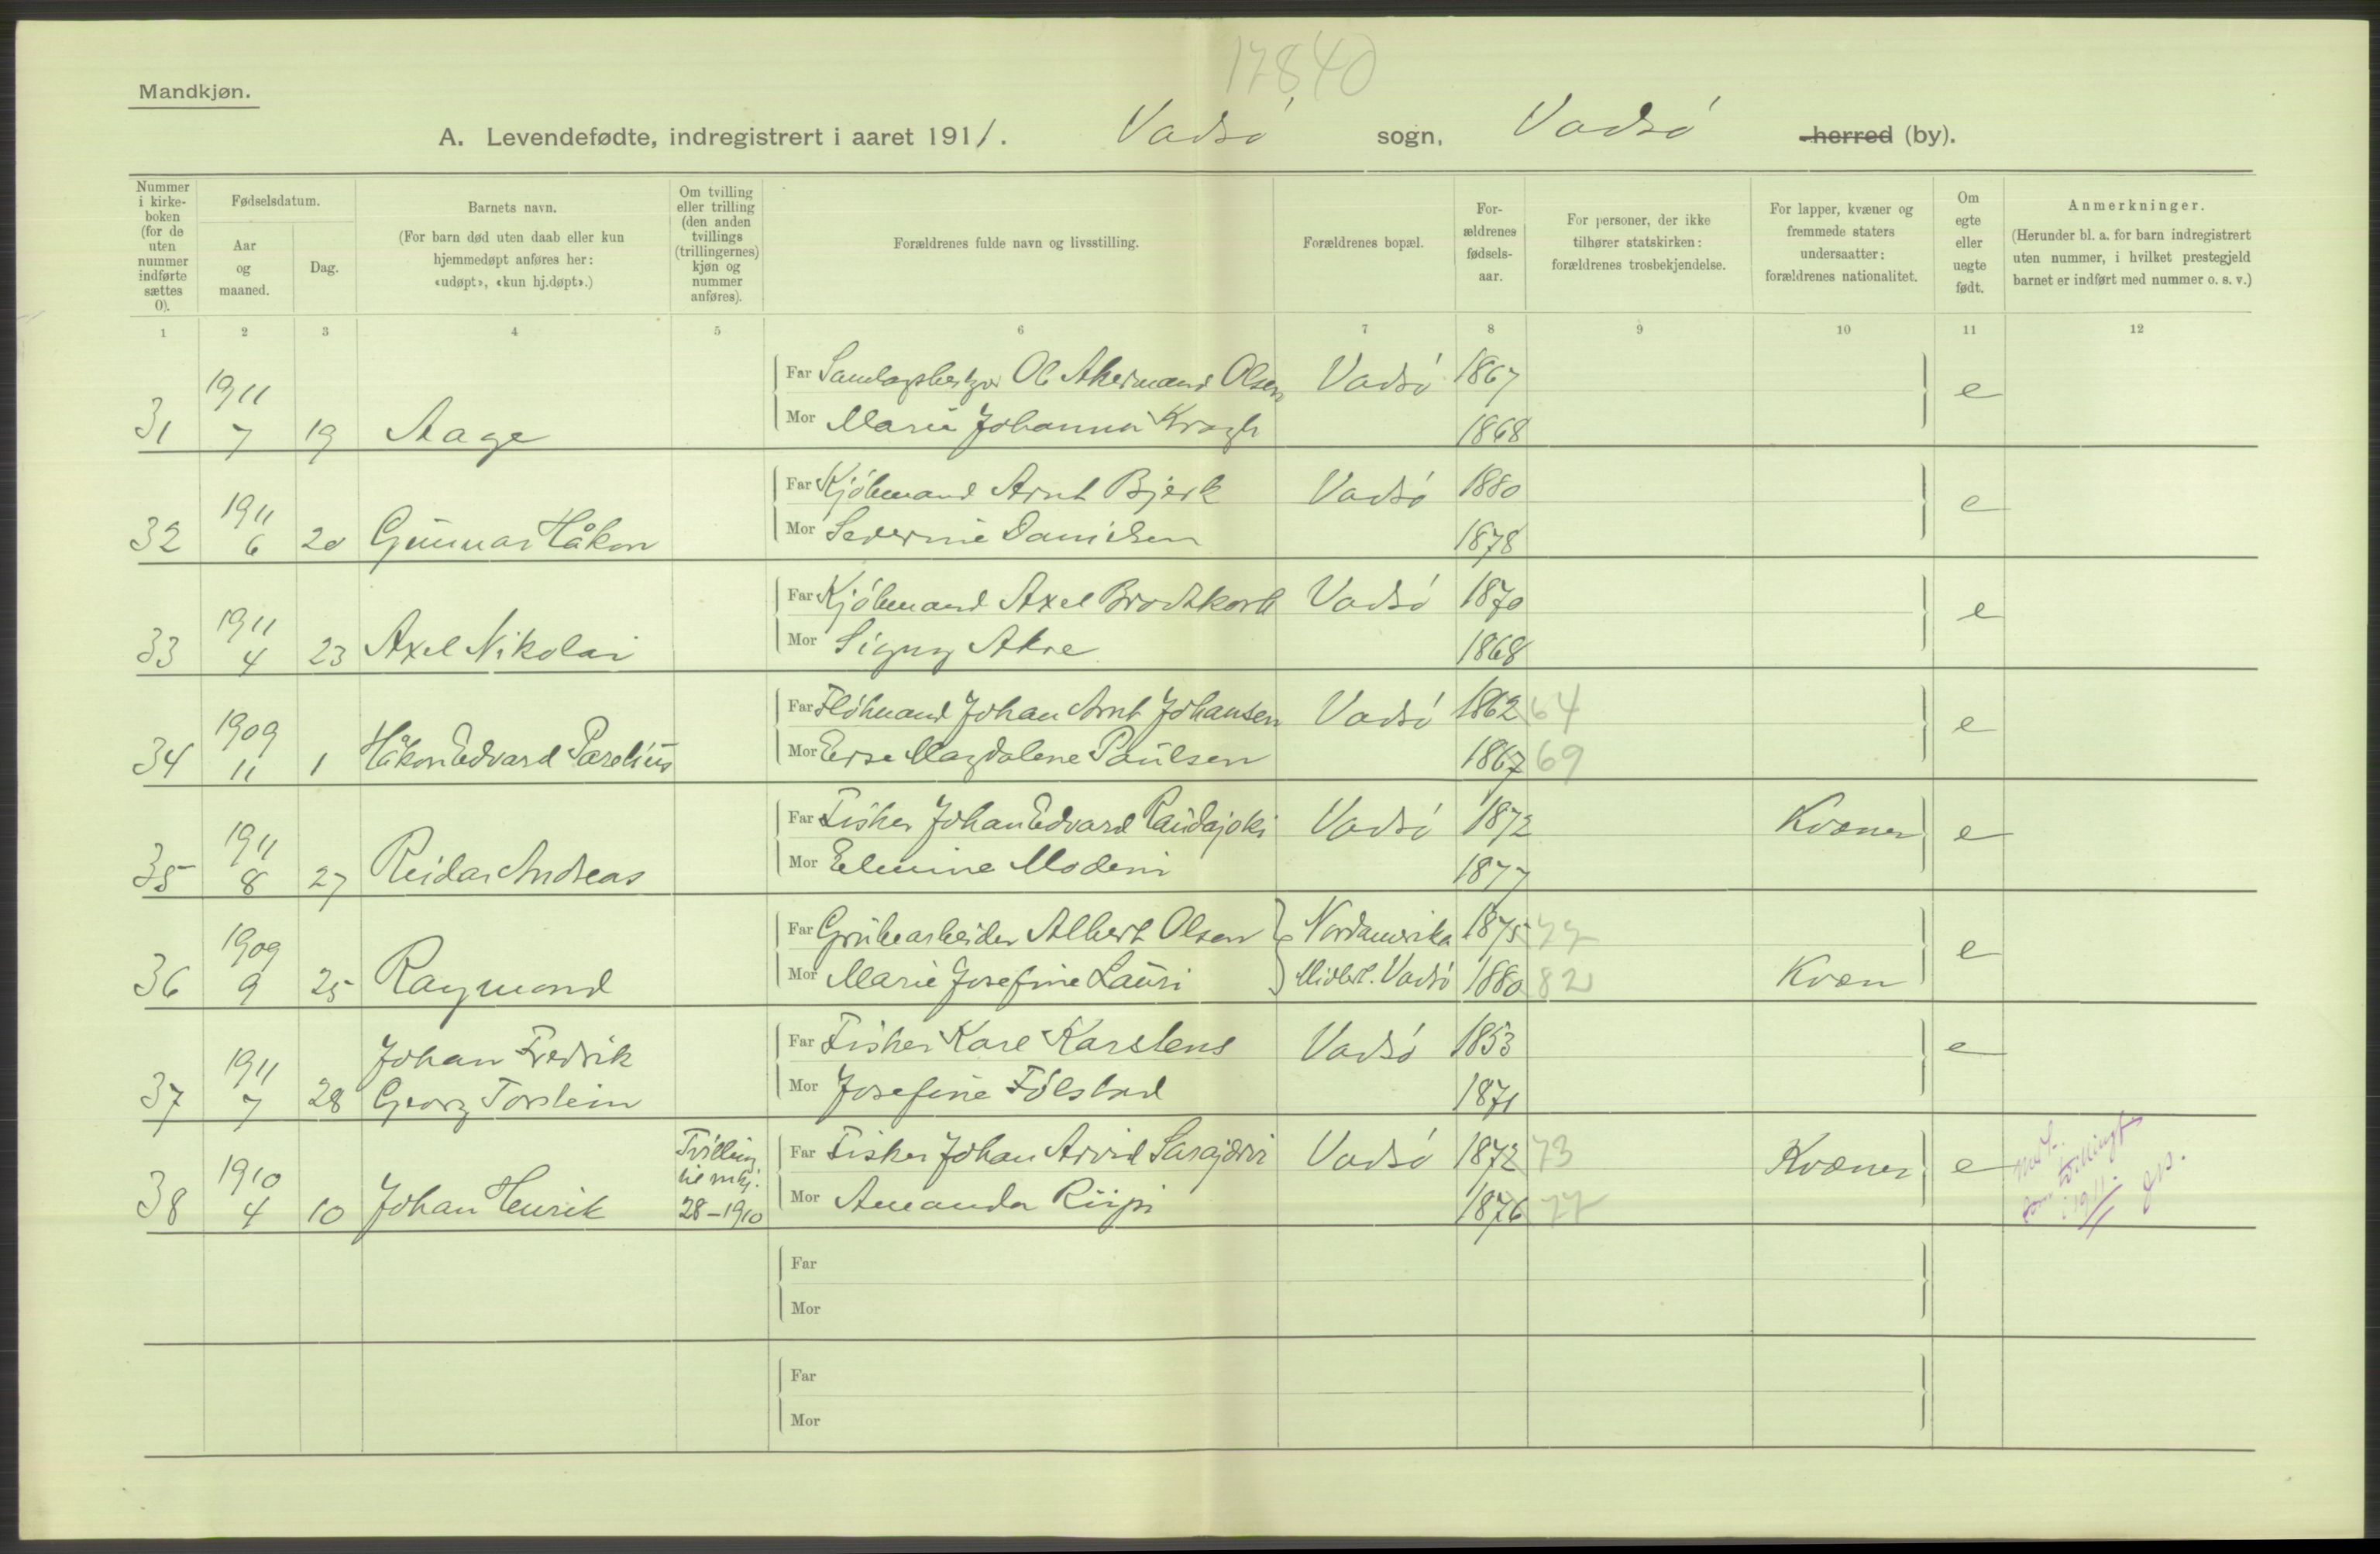 17840
Mandkjøn.
A. Levendefødte, indregistrert i aaret 1911. Vadsø sogn, Vadsø herred (by).
Nummer i kirke-boken (for de uten nummer indførte sættes 0).
Fødselsdatum.
Aar og maaned.
Dag.
Barnets navn.
(For barn død uten daab eller kun hjemmedøpt anføres her: «udøpt», «kun hj.døpt».)
Om tvilling eller trilling (den anden tvillings (trillingernes) kjøn og nummer anføres).
Forældrenes fulde navn og livsstilling.
Forældrenes bopæl.
For-ældrenes fødsels-aar.
For personer, der ikke tilhører statskirken: forældrenes trosbekjendelse.
For lapper, kvæner og fremmede staters undersaatter: forældrenes nationalitet.
Om egte eller uegte født.
Anmerkninger.
(Herunder bl. a. for barn indregistrert uten nummer, i hvilket prestegjeld barnet er indført med nummer o. s. v.)
1 2 3 4 5 6 7 8 9 10 11 12
Far Ole Akermand Olsen Vadsø 1867 e
31 1911 7 19 Aage
Mor Marie Johanna Kragh 1868
Far Kjøbmand Arnt Bjerk Vadsø 1880 e
32 1911 6 20 Gunnar Håkon
Mor Severine Danielsen 1878
Far Kjøbmand Axel Brodtkorb Vadsø 1870 e
33 1911 4 23 Axel Nikolai
Mor Signy Akre 1868
Far Johan Arnt Johansen Vadsø 1862 64 e
34 1909 11 1 Håkon Edvard Parelius
Mor Magdalene Paulsen 1867 69
Far Fisker Johan Edvard Raudajoki Vadsø 1872 Kvæner e
35 1911 8 27 Reidar Andreas
Mor Elmine Modeni 1877
Far Grubearbeider Albert Olsen Nordamerika 1875 77 e
36 1909 9 25 Raymond
Mor Marie Josefine Lauri Midlert. Vadsø 1880 82 Kvæn
Far Fisker Karl Karstens Vadsø 1853 e
37 1911 7 28 Johan Fredrik
Georg Torstein
Mor Josefine Følstad 1871
Far Fisker Johan Arvid Sarajærvi Vadsø 1872 73 Kvæner e
38 1910 4 10 Johan Henrik
Tvilling
til mkj.
28-1910
Mor Amanda Riipi 1876 77
Far
Mor
Far
Mor